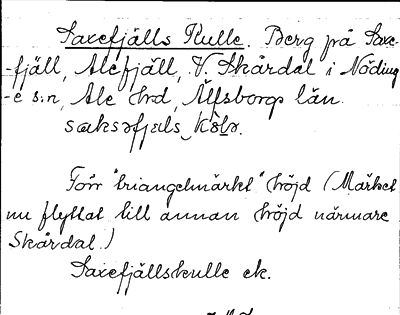 Saxefjälls Kulle. Berg på Saxe-
-fjäll, Alefjäll, V. Skårdal i Nöding
-e s:n, Ale hrd, Älfsborgs län.
sæksəfjæls
Förr "triangelmärkt" höjd (Märket
nu flyttat till annan höjd närmare
Skårdal.)
Saxefjällskulle ek.